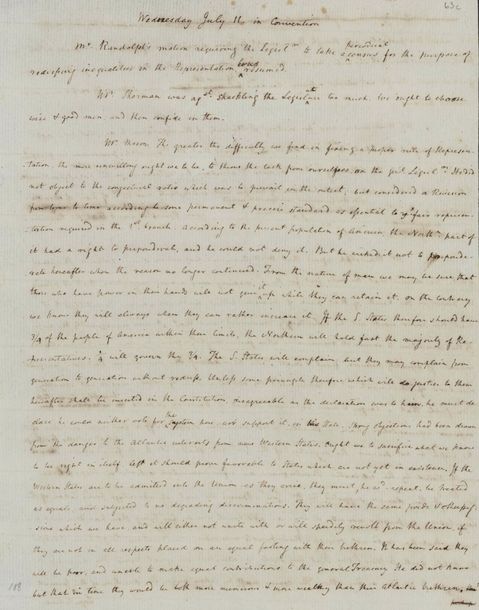 63c
Wednesday July 11 in Convention
Mr. Randolph's motion requiring the Legislre to take a periodical census for the purpose of
redressing inequalities in the Representation was resumed.
Mr. Sherman was agst. shackling the Legislature too much. We ought to choose
wise & good men, and then confide in them.
Mr. Mason. The greater the difficulty we find in fixing a proper rule of Represen-
tation, the more unwilling ought we to be, to throw the task from ourselves, on the Genl. Legislre. He did
not object to the conjectural ratio which was to prevail in the outset; but considered a Revision
from time to time according to some permanent & precise standard as essential to ye. fair represen-
tation required in the 1st. branch. According to the present population of America, the Northn. part of
it had a right to preponderate, and he could not deny it. But he wished it not to preponde-
rate hereafter when the reason no longer continued. From the nature of man we may be sure, that
those who have power in their hands will not give it up while they can retain it. On the contrary
we know they will always when they can rather increase it. If the S. States therefore should have
3/4 of the people of America within their limits, the Northern will hold fast the majority of Re-
presentatives. 1/4 will govern the 3/4. The S. States will complain: but they may complain from
generation to generation without redress. Unless some principle therefore which will do justice to them
hereafter shall be inserted in the Constitution, disagreeable as the declaration was to him, he must de-
clare he could neither vote for the system here, nor support it, in his State. Strong objections had been drawn
from the danger to the Atlantic interests from new Western States. Ought we to sacrifice what we know
to be right in itself, lest it should prove favorable to States which are not yet in existence. If the
Western States are to be admitted into the Union as they arise, they must, he wd. repeat, be treated
as equals, and subjected to no degrading discriminations. They will have the same pride & other pas-
sions which we have, and will either not unite with or will speedily revolt from the Union, if
they are not in all respects placed on an equal footing with their brethren. It has been said they
will be poor, and unable to make equal contributions to the general Treasury. He did not know
but that in time they would be both more numerous & more wealthy than their Atlantic brethren.
188